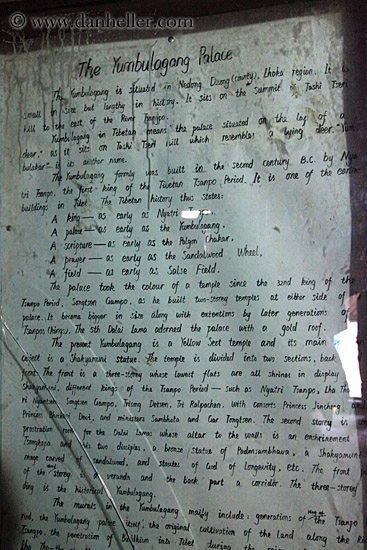 © www.danheller.com
The Yumbulagang Palace
The Yumbulagang is situated in Nedong Dzong (county), Lhoka region. It is
small in size but lengthy in history. It sits on the summit of Tashi Tseri
Hill to the east of the River
Yumbulagang in Tibetan means the palace situated on the leg of a
deer, as it sits on Tashi Tseri Hill which resembles a lying deer. Yum
bulakar is its another name.
The Yumbulagang formly was built in the second century B.C. by Nya
tri Tsanpo, the first king of the Tibetan Tsanpo Period. It is one of the earl
buildings in Tibet. The Tibetan history thus states:
A king — as early as Nyatri
A palace — as early as the Yumbulagang.
A scripture — as early as the Palgon Chakar.
A prayer — as early as the Sandalwood Wheel.
A field — as early as Salse Field.
The palace took the colour of a temple since the 32nd king of the
Tsanpo Period, Songtsen Gampo, as he built two-storey temples at either side of
palace. It became bigger in size along with extentions by later generations of
Tsanpos (kings). The 5th Dalai lama adorned the palace with a gold roof.
The present Yumbulagang is a Yellow Sect temple and its main
object is a Shakyamuni statue. The temple is divided into two sections, back
front. The front is a three-storey whose lowest flats are all shrines in display
Shakyamuni, different kings of the Tsanpo Period — such as Nyatri Tsanpo, Lha Tho
ri Nyantsen, Songtsen Gampo, Trisong Detsen, Tri Ralpachan, with consorts Princess Jincheng and
Princess Bhrikuti Devi, and ministers Sambhota and Gar Tongtsen. The second storey is
prostration roof for the Dalai lamas whose altar to the walls is an enshrinement
Tsongkapa and his two disciples, a bronze status of Padmsambhava, a Shakyamuni
mage carved of sandalwood, and stautes of God of Longevity, etc. The front
of the storey is a veranda and the back part a corridor. The three-storey
ding is the historical Yumbulagang.
The murals in the Yumbulagang maily include: generations of the Tsanpo
riod, the Yumbulagang palace itself, the original cultivation of the land along the
Tsangpo, the penetration of Buddhism into Tibet during the